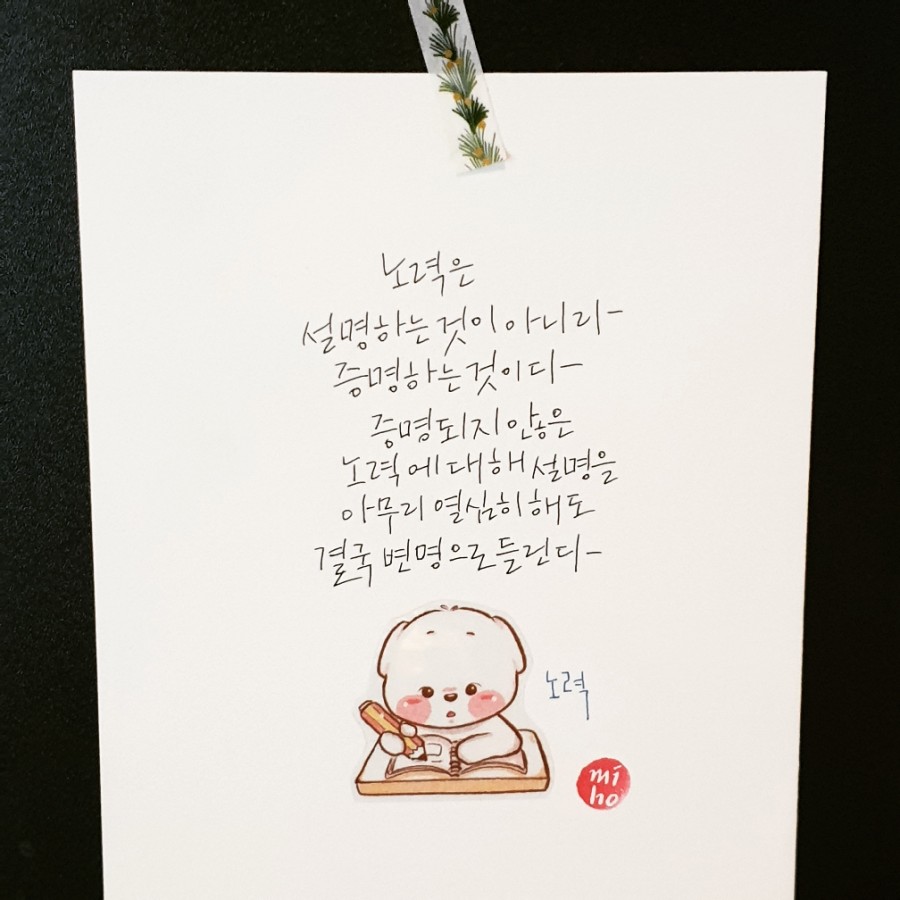 노력은
설명하는것이 아니라-
증명하는것이다-
증명되지 않은
노력에 대해 설명을
아무리 열심히 해도
결국 변명으로 들린다-
노력
mi
ho